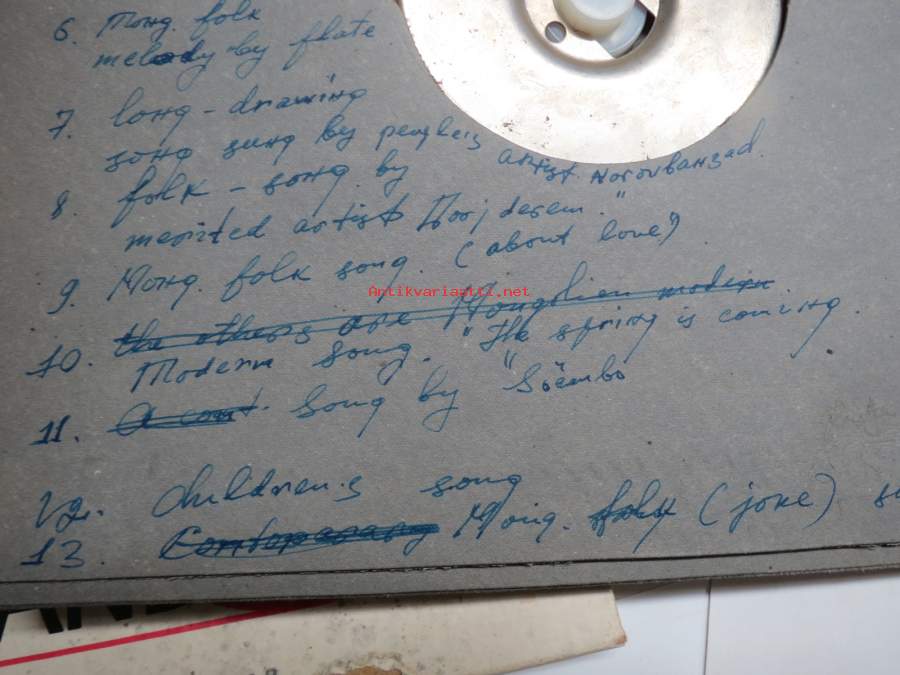 6. Mong. folk
melody by flute
7. long-drawing
song sung by people's artist Norovbanzad.
8. folk-song by
merited artist
9. Mong. folk song. (about love)
the others are Mongolien modern
10. Modern song. "The spring is coming.
11. Song by "Soëmbo
12. children's song
13. Contoporary Mong. folk (joke)
Antikvariaatti.net